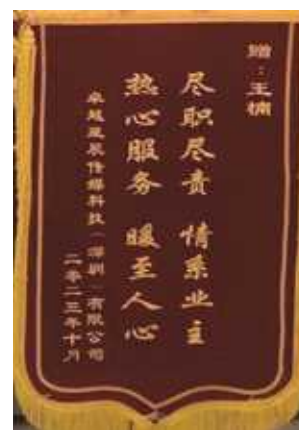 赠：王楠
尽职尽责 情系业主
热心服务 暖至人心
卓越星辰传媒科技（深圳）有限公司
二零二三年十月